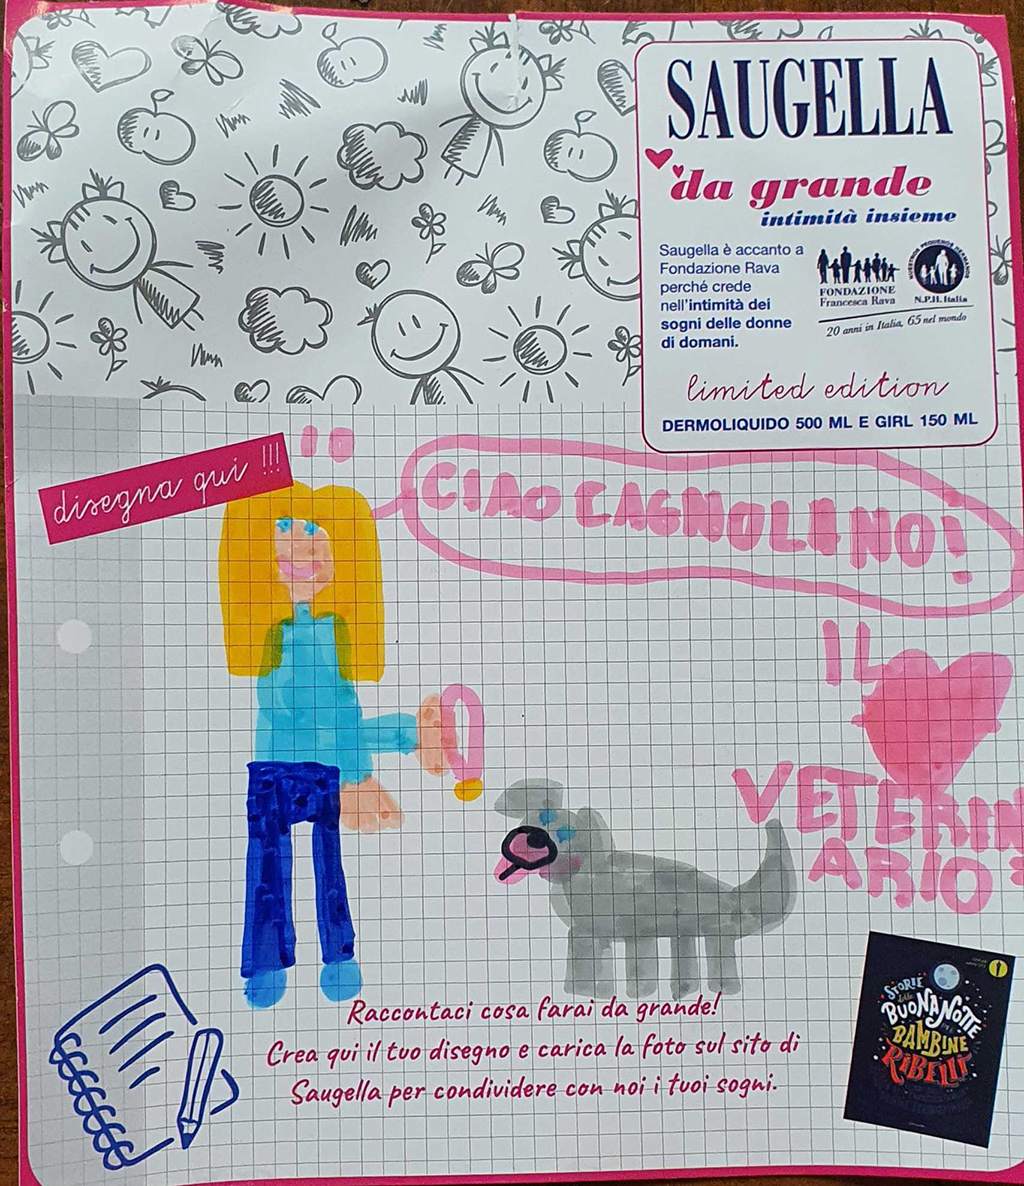 SAUGELLA
da grande
intimità insieme
Saugella è accanto a
Fondazione Rava
perché crede
nell'intimità dei
sogni delle donne
di domani.
FONDAZIONE
Francesca Rava
N.P.H. Italia
20 anni in Italia, 65 nel mondo
limited edition
DERMOLIQUIDO 500 ML E GIRL 150 ML
disegna qui !!!
IO
CIAO CAGNOLINO!
IL
VETERIN
ARIO
Raccontaci cosa farai da grande!
Crea qui il tuo disegno e carica la foto sul sito di
Saugella per condividere con noi i tuoi sogni.
STORIE
della
BUONANOTTE
per
BAMBINE
RIBELLI